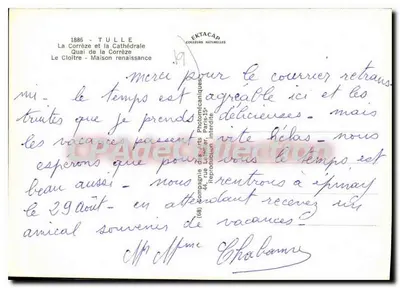 1886 - TULLE
La Corrèze et la Cathédrale
Quai de la Corrèze
Le Cloître - Maison renaissance
EKTACAP
Merci pour le courrier retrans
mi - le temps est agréable ici et les
truites que je prends délicieuses - mais
les vacances passent vite hélas - nous
espérons que pour vous le temps est
beau aussi - nous rentrons à épinay
le 29 Août - en attendant recevez un
amical souvenir de vacances -
Mr Mme Chabanne